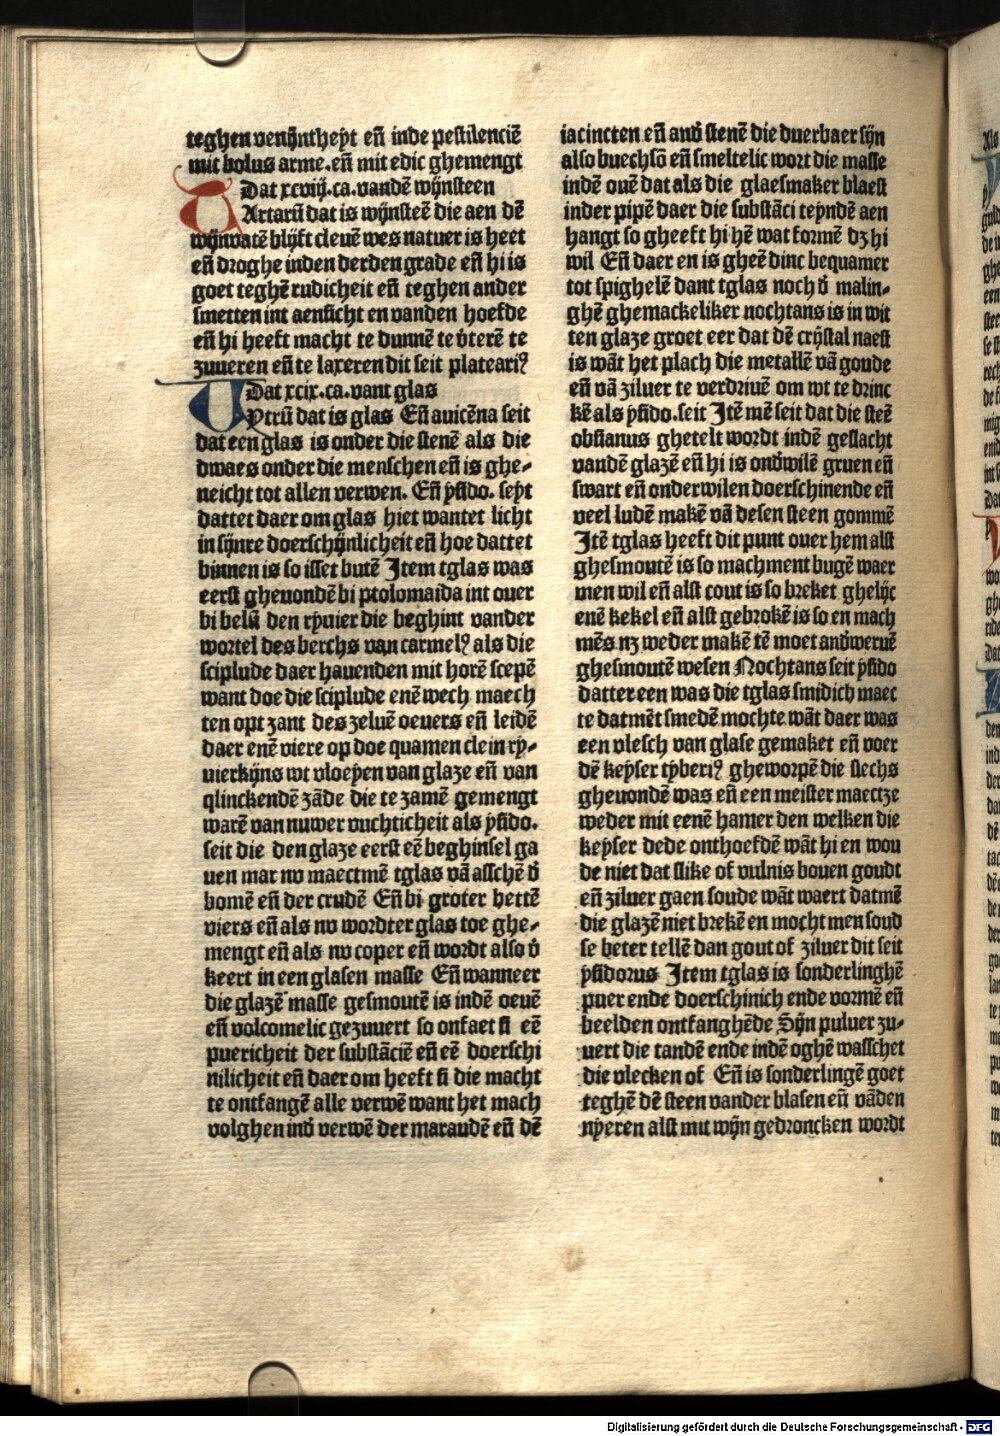 teghen venijntheyt en̄ inde pestilenciē
mit bolus arme. en̄ mit edic ghemengt
Dat xcviij. ca. vandē wijnsteen
TArtarū dat is wijnsteē die aen dē
wijnvatē blijft cleuē wes natuer is heet
en̄ droghe inden derden grade en̄ hi is
goet teghē rudicheit en̄ teghen ander
smetten int aensicht en vanden hoefde
en̄ hi heeft macht te dunnē te v̓terē te
zuueren en̄ te laxeren dit seit plateariꝰ
Dat xcix. ca. vant glas
VYtrū dat is glas En̄ auicēna seit
dat een glas is onder die stenē als die
dwaes onder die menschen en̄ is ghe⸗
neicht tot allen verwen. En̄ ysido. seyt
dattet daer om glas hiet wantet licht
in sijnre doerschijnlicheit en̄ hoe dattet
binnen is so isset butē Item tglas was
eerst gheuondē bi ptolomaida int ouer
bi belū den ryuier die beghint vander
wortel des berchs van carmelꝰ als die
sciplude daer hauenden mit horē scepē
want doe die sciplude enē wech maech
ten opt zant des zeluē oeuers en̄ leidē
daer enē viere op doe quamen clein ry⸗
uierkijns wt vloeyen van glaze en̄ van
qlinckendē zāde die te zamē gemengt
warē van nuwer vuchticheit als ysido.
seit die den glaze eerst eē beghinsel ga
uen mar nv maectmē tglas vā asschē d̓
bomē en̄ der crudē En̄ bi groter hettē
viers en̄ als nv wordter glas toe ghe⸗
mengt en̄ als nv coper en̄ wordt also v̓
keert in een glasen masse En̄ wanneer
die glazē masse gesmoutē is indē oeuē
en̄ volcomelic gezuuert so onfaet si eē
puericheit der substāciē en̄ eē doerschi
nilicheit en̄ daer om heeft si die macht
te ontfangē alle verwē want het mach
volghen ind̓ verwē der maraudē en̄ dē
iacincten en̄ and̓ stenē die duerbaer sijn
also buechsō en̄ smeltelic wort die masse
indē ouē dat als die glaesmaker blaest
inder pipē daer die substāci teyndē aen
hangt so gheeft hi hē wat formē dz hi
wil En̄ daer en is gheē dinc bequamer
tot spighelē dant tglas noch d̓ malin⸗
ghē ghemackeliker nochtans is in wit
ten glaze groet eer dat dē crijstal naest
is wāt het plach die metallē vā goude
en̄ vā ziluer te verdriuē om wt te drinc
kē als ysido. seit Itē mē seit dat die steē
obsianus ghetelt wordt indē geslacht
vandē glazē en̄ hi is ond̓wilē gruen en̄
swart en̄ onderwilen doerschinende en̄
veel ludē makē vā desen steen gommē
Itē tglas heeft dit punt ouer hem alst
ghesmoutē is so machment bugē waer
men wil en̄ alst cout is so breket ghelijc
enē kekel en̄ alst gebrokē is so en mach
mēs nz weder makē tē moet and̓weruē
ghesmoutē wesen Nochtans seit ysido
datter een was die tglas smidich maec
te datmēt smedē mochte wāt daer was
een vlesch van glase gemaket en̄ voer
dē keyser tyberiꝰ gheworpē die slechs
gheuondē was en̄ een meister maectze
weder mit eenē hamer den welken die
keyser dede onthoefdē wāt hi en wou
de niet dat slike of vulnis bouen goudt
en̄ ziluer gaen soude wāt waert datmē
die glazē niet brekē en mocht men soud
se beter tellē dan gout of ziluer dit seit
ysidorus Item tglas is sonderlinghē
puer ende doerschinich ende vormē en̄
beelden ontfanghēde Sijn puluer zu⸗
uert die tandē ende indē oghē wasschet
die vlecken of En̄ is sonderlingē goet
teghē dē steen vander blasen en̄ vāden
nyeren alst mit wijn gedroncken wordt
Digitalisierung gefördert durch die Deutsche Forschungsgemeinschaft - DFG